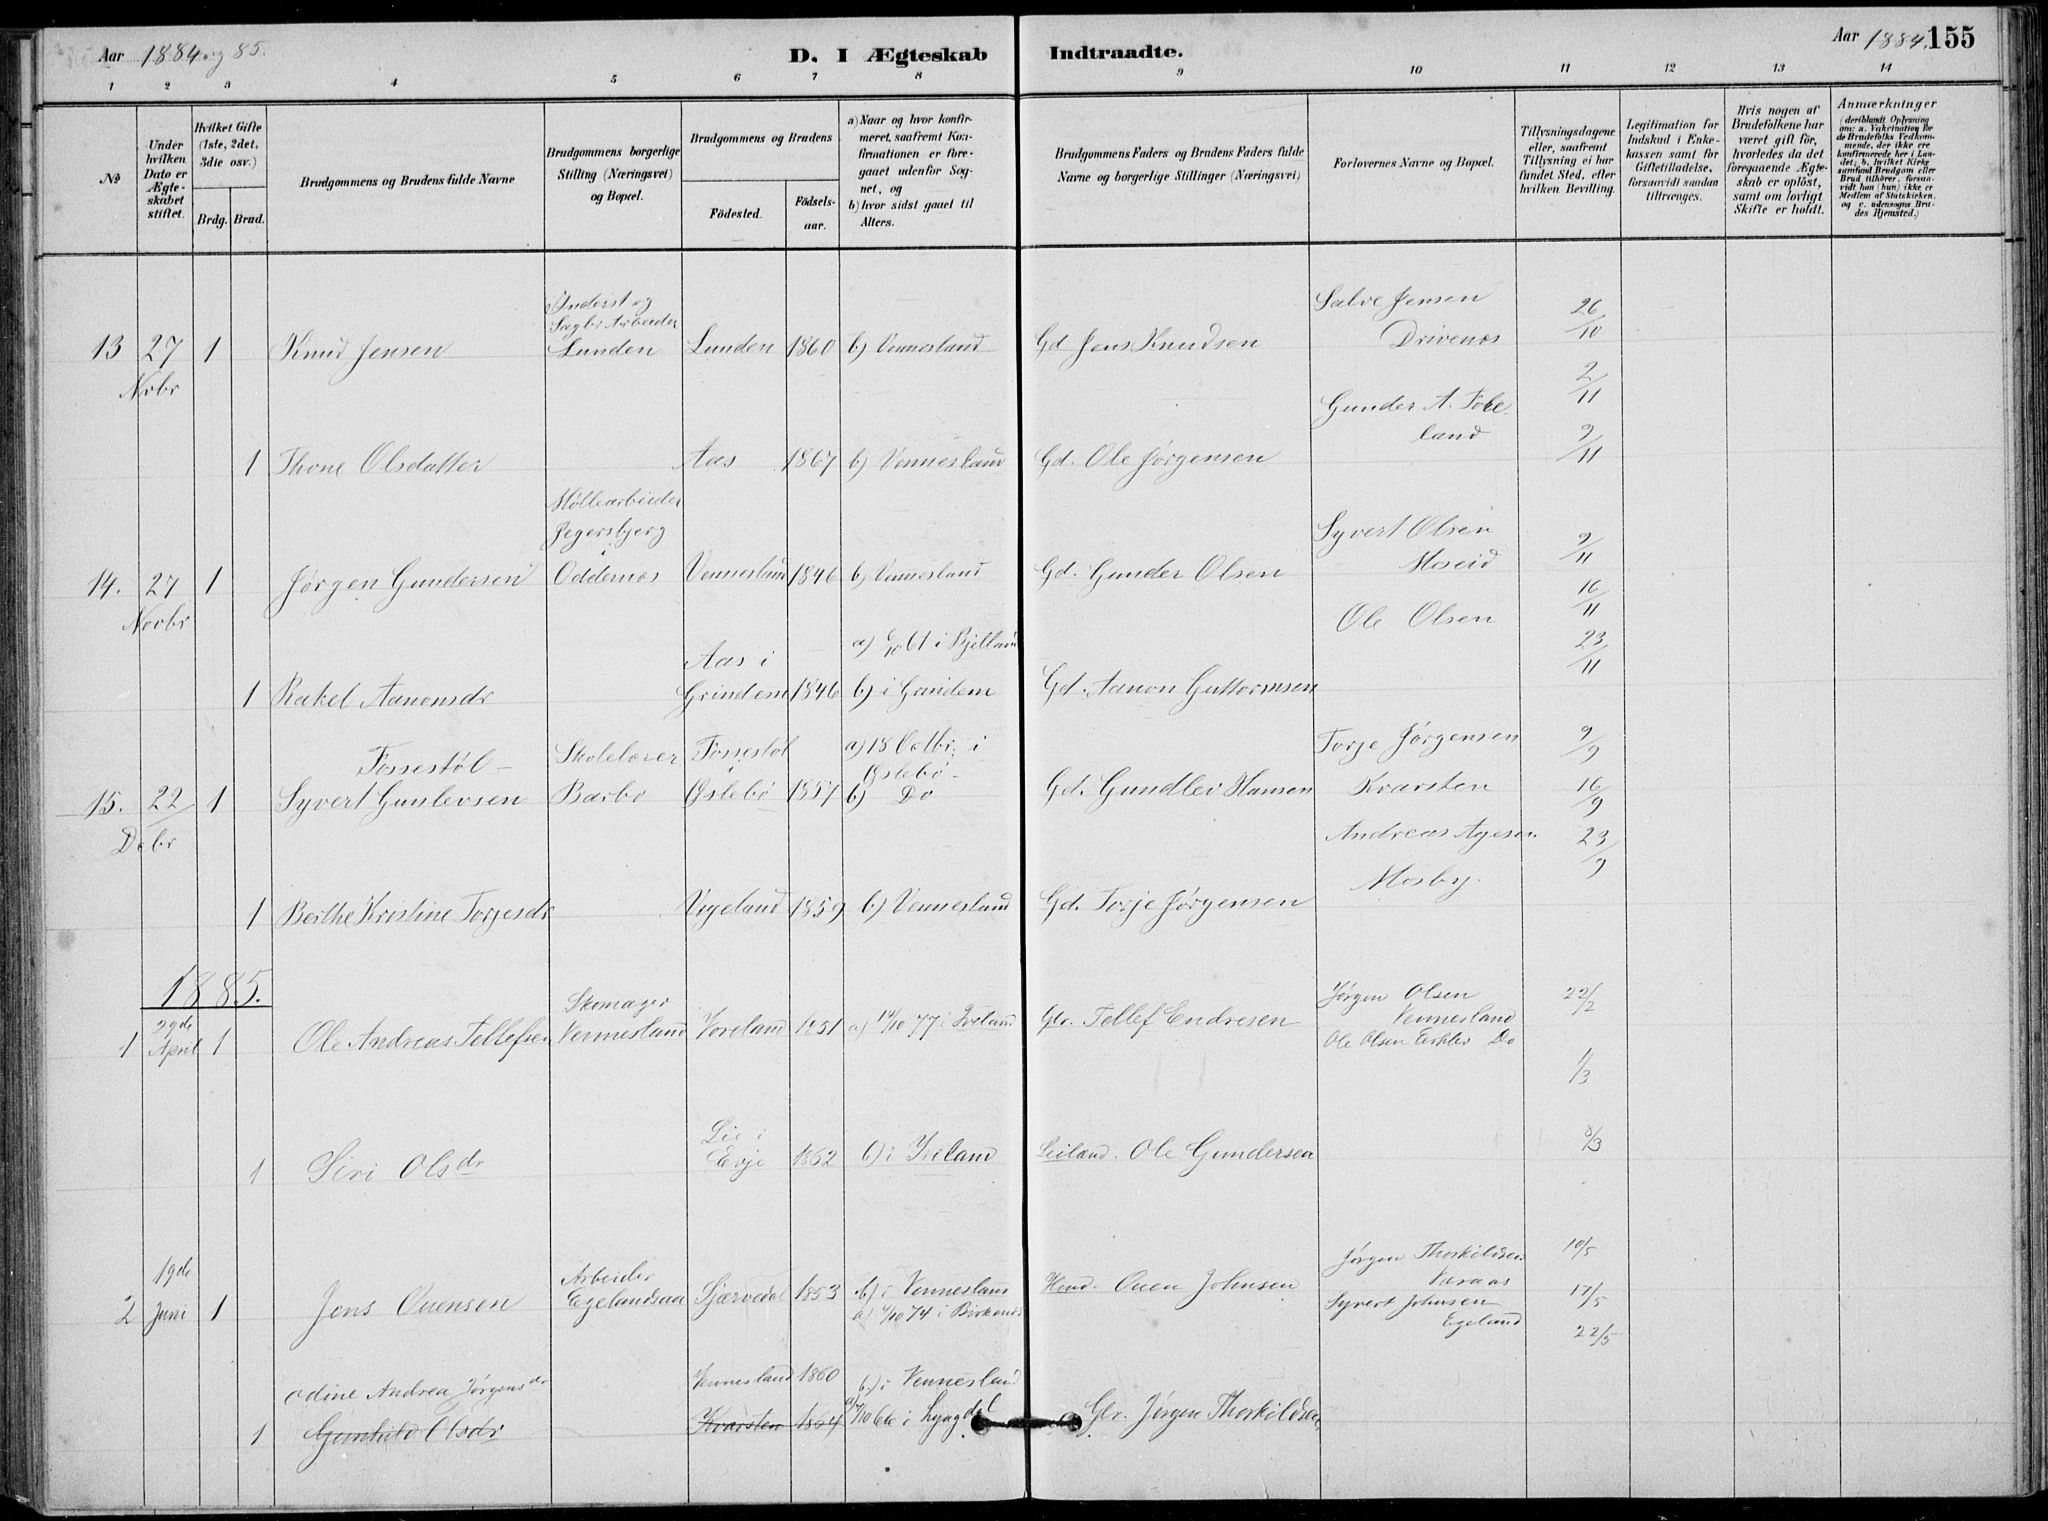 Aar 1884 og 85.
D. I Ægteskab Indtraadte.
Aar 1884. 155
1 2 3 4 5 6 7 8 9 10 11 12 13 14
No
Under hvilken Dato er Ægteskabet stiftet.
Hvilket Gifte (1ste, 2det, 3die osv.)
Brdg. Brud.
Brudgommens og Brudens fulde Navne
Brudgommens borgerlige Stilling (Næringsvei) og Bopæl.
Brudgommens og Brudens
Födested.
Födselsaar.
a) Naar og hvor konfirmeret, saafremt Konfirmationen er foregaaet udenfor Sognet, og
b) hvor sidst gaaet til Alters.
Brudgommens Faders og Brudens Faders fulde Navne og borgerlige Stillinger (Næringsvei)
Forlovernes Navne og Bopæl.
Tillysningsdagene eller, saafremt Tillysning ei har fundet Sted, efter hvilken Bevilling.
Legitimation for Indskud i Enkekassen samt for Giftetilladelse, forsaavidt saadan tiltrænges.
Hvis nogen af Brudefolkene har været gift för, hvorledes da det foregaaende Ægteskab er oplöst, samt om lovligt Skifte er holdt.
Anmærkninger (deriblandt Oplysning om: a. Vakcination for de Brudefolks Vedkommende, der ikke ere konfirmerede her i Landet; b. hvilket Kirkesamfund Brudgom eller Brud tilhörer, forsaavidt han (hun) ikke er Medlem af Statskirken, og c. udensogns Brudes Hjemsted.)
Inderst og
Sagbr. Arbeider
Salve Jensen
26/10
13 27 1 Knud Jensen Lunden Lunden 1860 b) Vennesland Gd Jens Knudsen Drivenes
Novbr
2/11
Gunder A. Fore
land
9/11
1 Thone Olsdatter Aas 1867 b) Vennesland Gd. Ole Jørgensen
Møllearbeider
Jegersbjerg
i
Syvert Olsen
Moseid
9/11
14. 27 1 Jørgen Gundersen Oddernes Vennesland 1846 b) Vennesland Gd. Gunder Olsen
Novbr
16/11
Ole Olsen
23/11
Aas i
a) 6/10 61 i Bjelland
1 Rakel Aanonsdr Grindem 1846 b) i Grindem Gd. Aanon Guttormsen
Fossestøl Skolelærer Fossestøl a) 18 Octbr. i Torje Jørgensen 9/9
i
Øslebø
15. 22 1 Syvert Gunlevsen Barbo Øslebø 1857 b) Do Gd. Gundlev Hansen Kvarsten 16/9
Debr
Andreas Agesen 23/9
Mosby.
1 Berthe Kristine Torjesdr Vigeland 1859 b) Vennesland Gd. Torje Jørgensen
1885.
Skomager
Jørgen Olsen 22/2
Vennesland
1 29de April 1 Ole Andreas Tellefsen Vennesland 1851 a) 14/10 77 i Iveland Glr. Tellef Endresen
Ole Olsen Do
1/3
Lie i
8/3
1 Siri Olsdr Evje 1862 b) i Iveland Ole Gundersen
Jørgen Thorkildsen 10/5
Varaas
Arbeider
2 19de Juni 1 Jens Ouensen Egelandsaa 1853 b) i Vennesland Ouen Johnsen
a) 4/10 74 i Birkenes
Syvert Johnsen 17/5
Egeland
22/5
Odine Andrea Jørgensdr Vennesland 1860 b.) i Vennesland
1 Gunhild Olsdr Kvarsten 1864 i Lyngdal Glr. Jørgen Thorkildsen